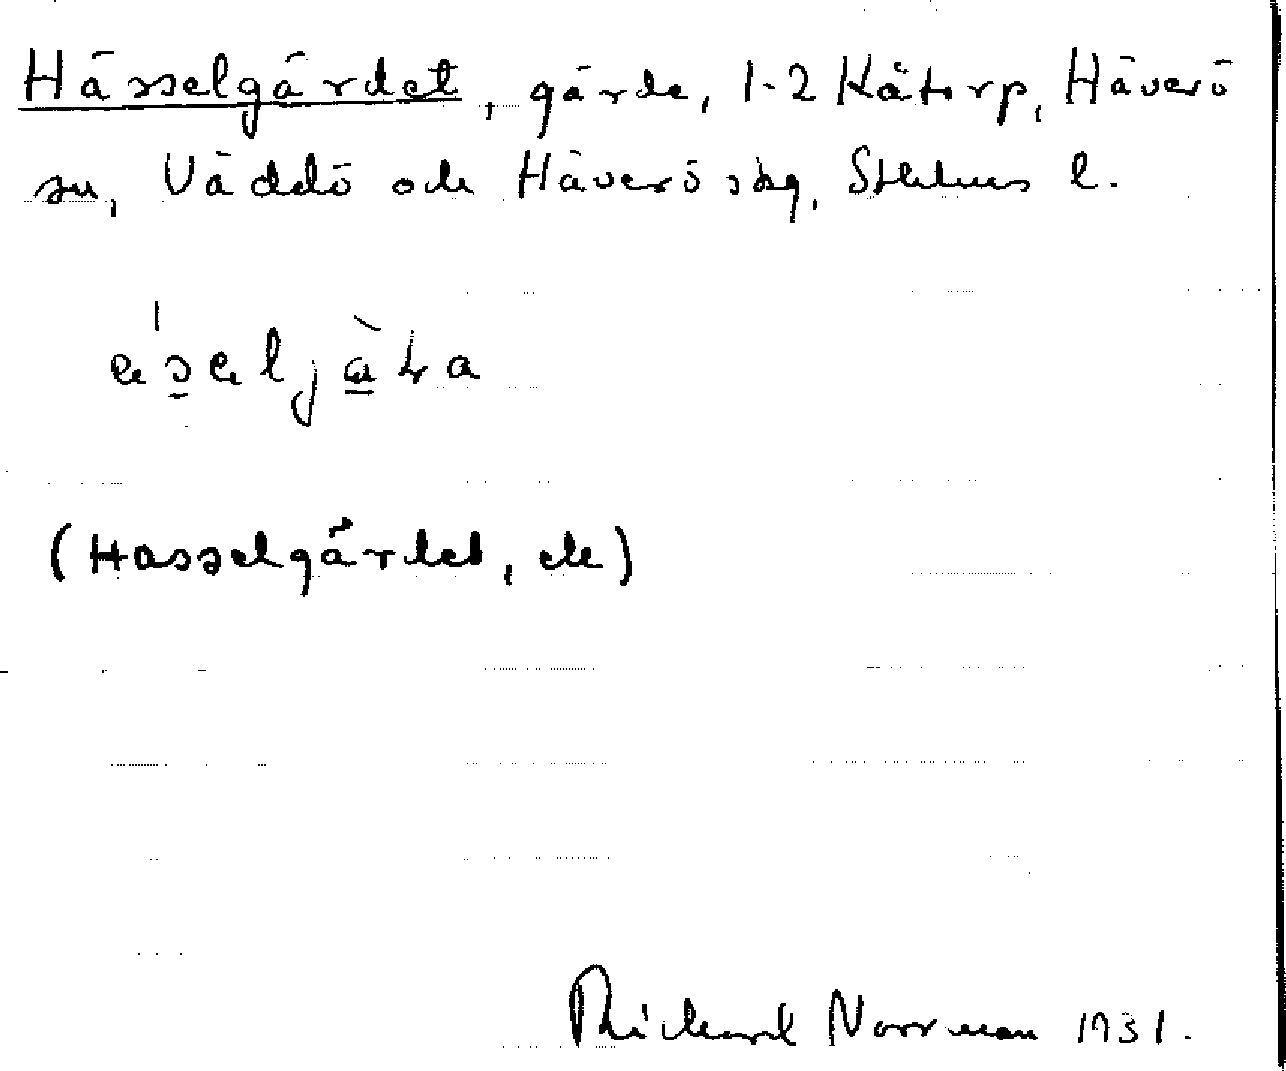 Hässelgärdet, gärde, 1-2 Kåtorp, Häverö
sn, Väddö och Häverö skg, Sthlms l.
(Hasselgärdet, ek)
Richard Norrman 1931.